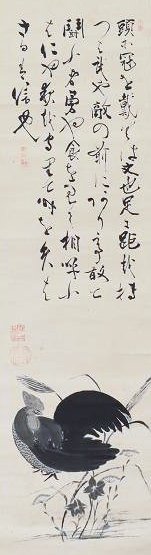 頭尓冠を戴くは文也足に距越持
つは武也敵の前にありて敢て
闘ふ者勇也食を見て相呼ふ
は仁也夜越守里て時を失は
さるは信也